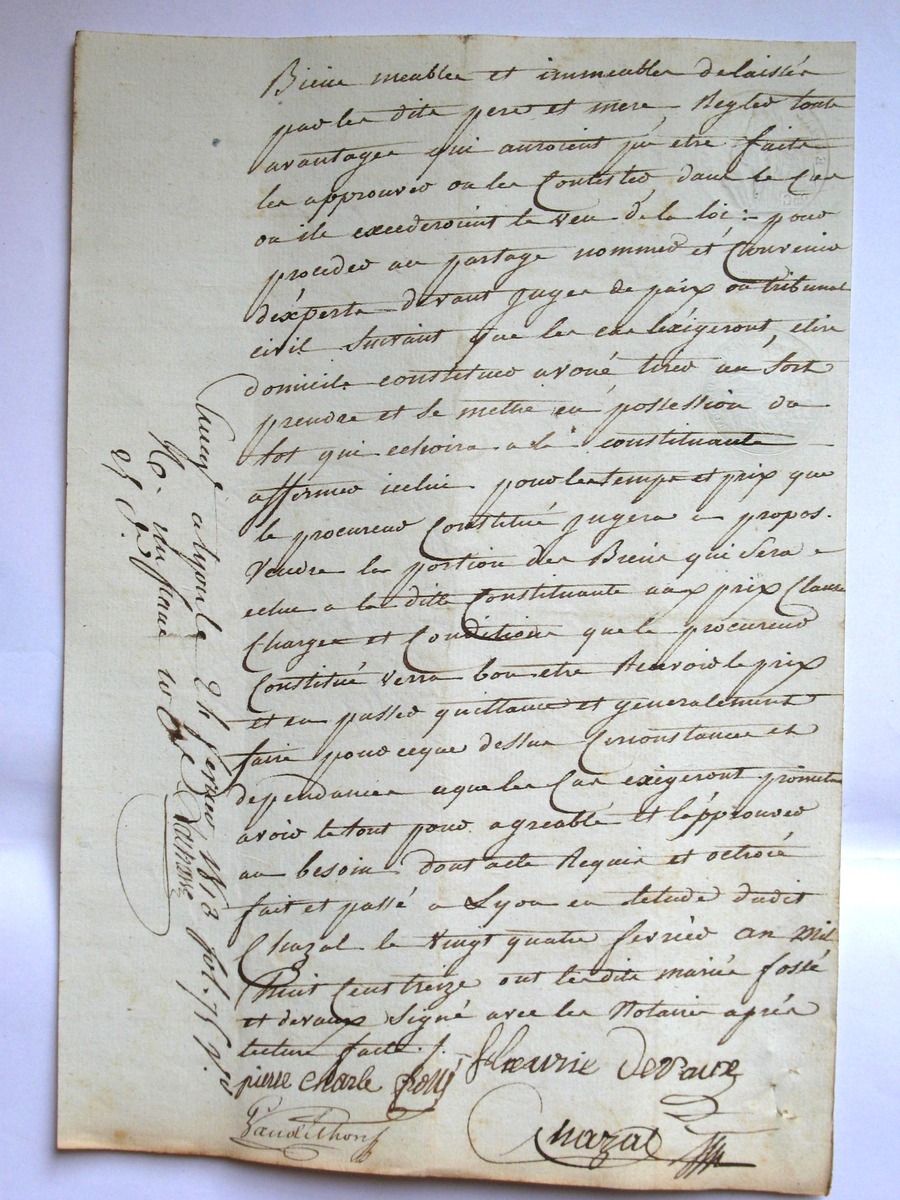 Biens meubles et immeubles delaissés
par les dits pere et mere Regler tous
avantages qui auroient pu etre faits
les approuver ou les Contester dans le Cas
ou ils excederoient le veu de la loi : pour
proceder au partage nommer et Convenir
d'éxperts devant juges de paix ou tribunal
civil suivant que les cas l'éxigeront, elire
domicile constituer avoué tirer au sort
prendre et se mettre en possession du
lot qui echoira a la constituante
affermer icelui pour le temps et prix que
le procureur Constitué jugera a propos.
Vendre la portion des Biens qui sera
echue a la ditte Constituante aux prix Clauses
Charges et Conditions que le procureur
Constitué verra bon etre Recevoir le prix
et en passer quittance et generalement
faire pour ce que dessus Circonstances et
dependances ce que les Cas exigeront promettant
avoir le tout pour agreable et l'épprouver
au besoin dont acte Requis et octroié
fait et passé a Lyon en letude dudit
Chazal le vingt quatre fevrier an mil
huit Cent treize ont les dits mariés fossé
et devaux signé avec les Notaires après
lecture faite ./.
pierre charle fossé fleurie devaux
Chazal
a Lyon le 24 fevrier 1813 fol. 75
R. un franc